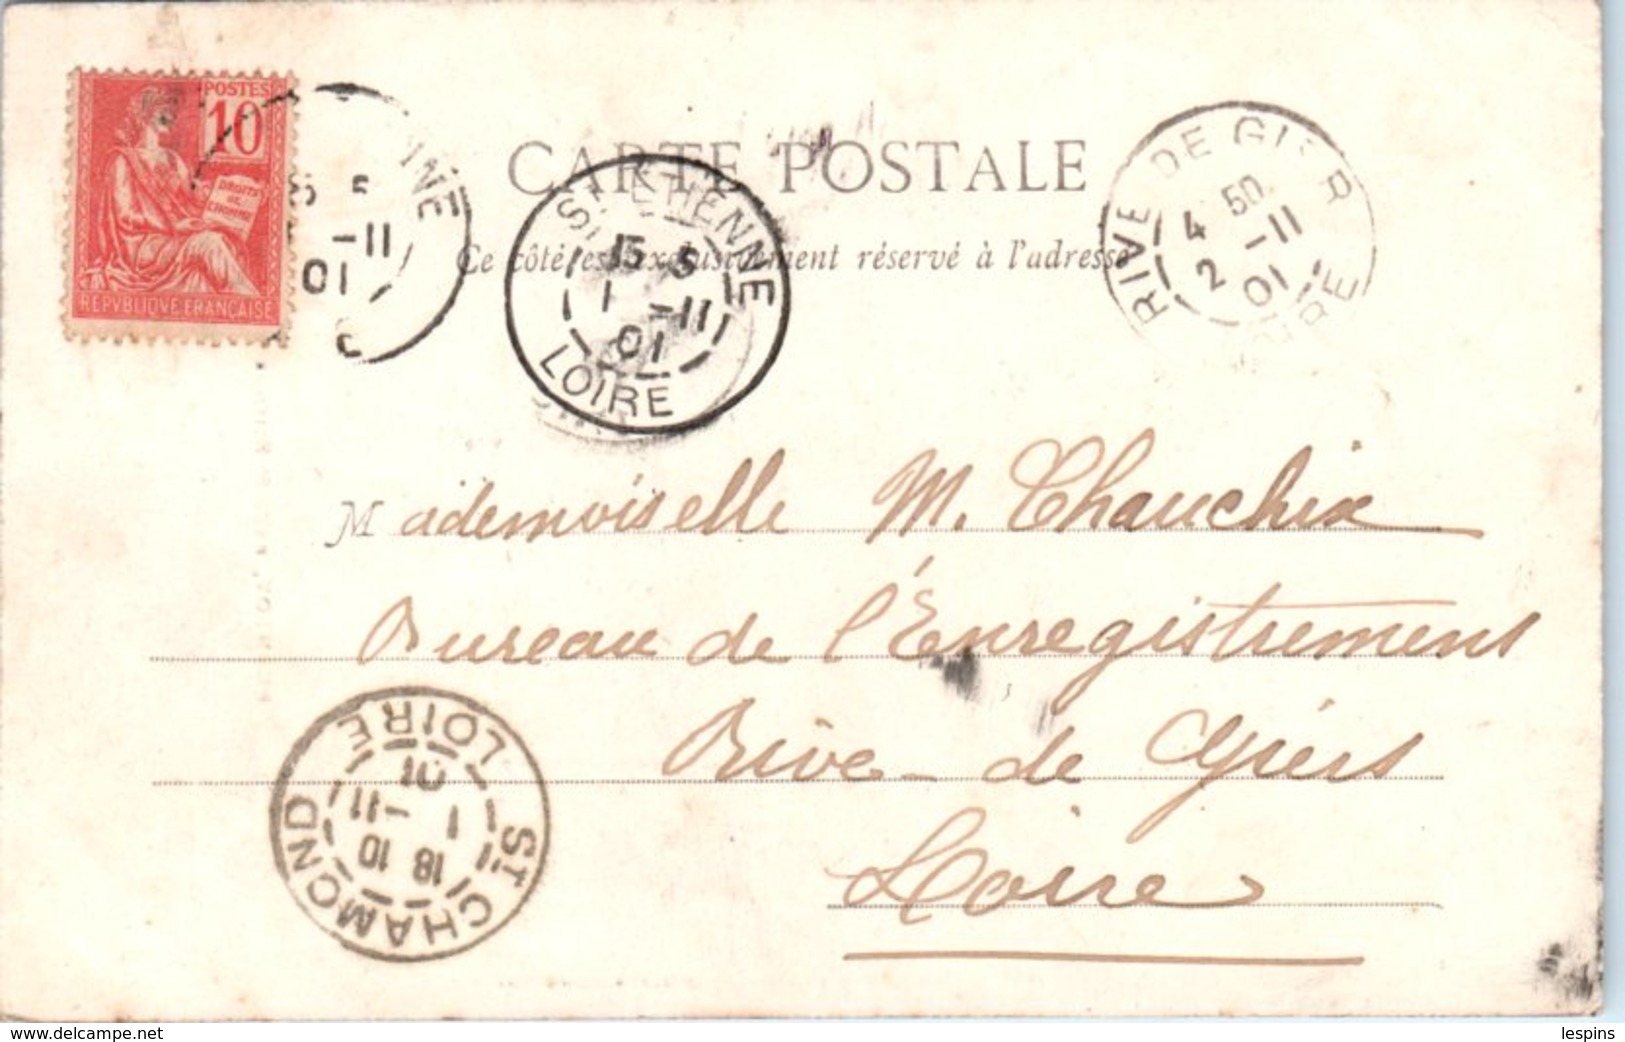 POSTES
10
DROITS
DE
L'HOMME
REPVBLIQVE FRANÇAISE
5
-11
01
CARTE POSTALE
Ce côté est exclusivement réservé à l'adresse
ST ETIENNE
15 5
1 -11
01
LOIRE
RIVE DE GIER
4 50
2 -11
01
LOIRE
Mademoiselle M. Chauchix
Bureau de l'Enregistrement
Rive-de Giers
Loire
ST CHAMOND
18 10
1 -11
01
LOIRE
www.delcampe.net
lespins